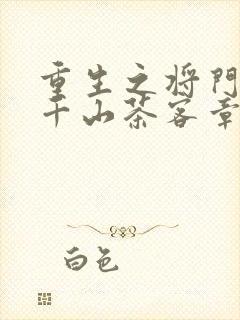 重生之将门
千山茶客章
白色